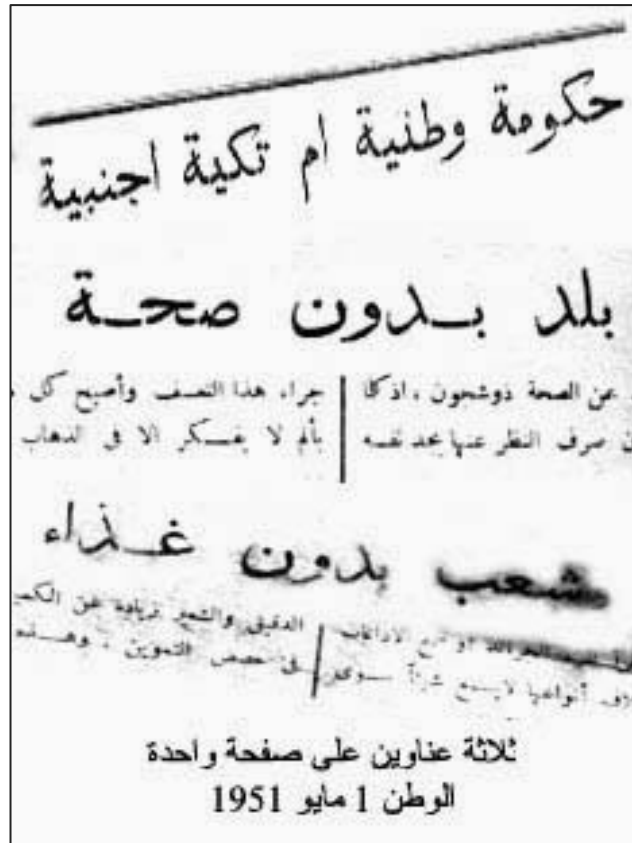 حكومة وطنية ام تكية اجنبية
بلد بدون صحة
عن الصحة ذوشجون ، اذكا
صرف النظر عنها يجد نفسه
جراء هذا التعسف وأصبح كل
بألم لا يفكر الا في الذهاب
شعب بدون غذاء
أنواعها لايسمع شيئاً سوى
الدقيق والشعير زيادة عن الكمية
في حصص التموين ، وهذه
ثلاثة عناوين على صفحة واحدة
الوطن 1 مايو 1951